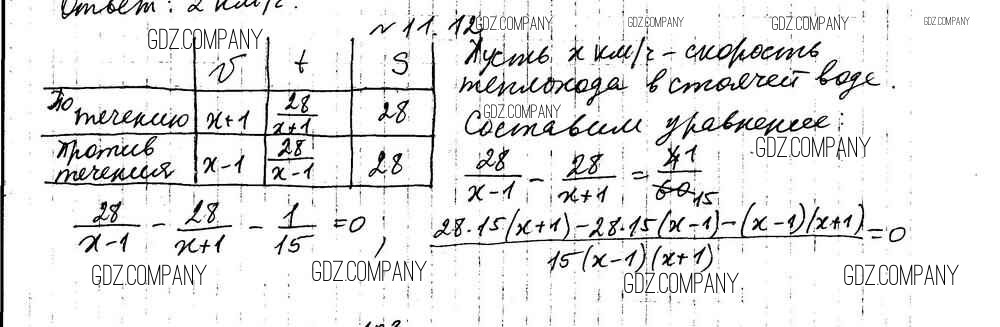 Ответ: 2 км/ч.
№ 11. 12
GDZ.COMPANY GDZ.COMPANY GDZ.COMPANY GDZ.COMPANY
GDZ.COMPANY
v t S
По течению x+1 28/(x+1) 28
Против течения x-1 28/(x-1) 28
Пусть x км/ч – скорость
теплохода в стоячей воде.
GDZ.COMPANY
Составим уравнение:
GDZ.COMPANY
28/(x-1) - 28/(x+1) = 4 1/60 15
28/(x-1) - 28/(x+1) - 1/15 = 0;
(28·15(x+1) - 28·15(x-1) - (x-1)(x+1))/(15(x-1)(x+1)) = 0
GDZ.COMPANY GDZ.COMPANY GDZ.COMPANY GDZ.COMPANY